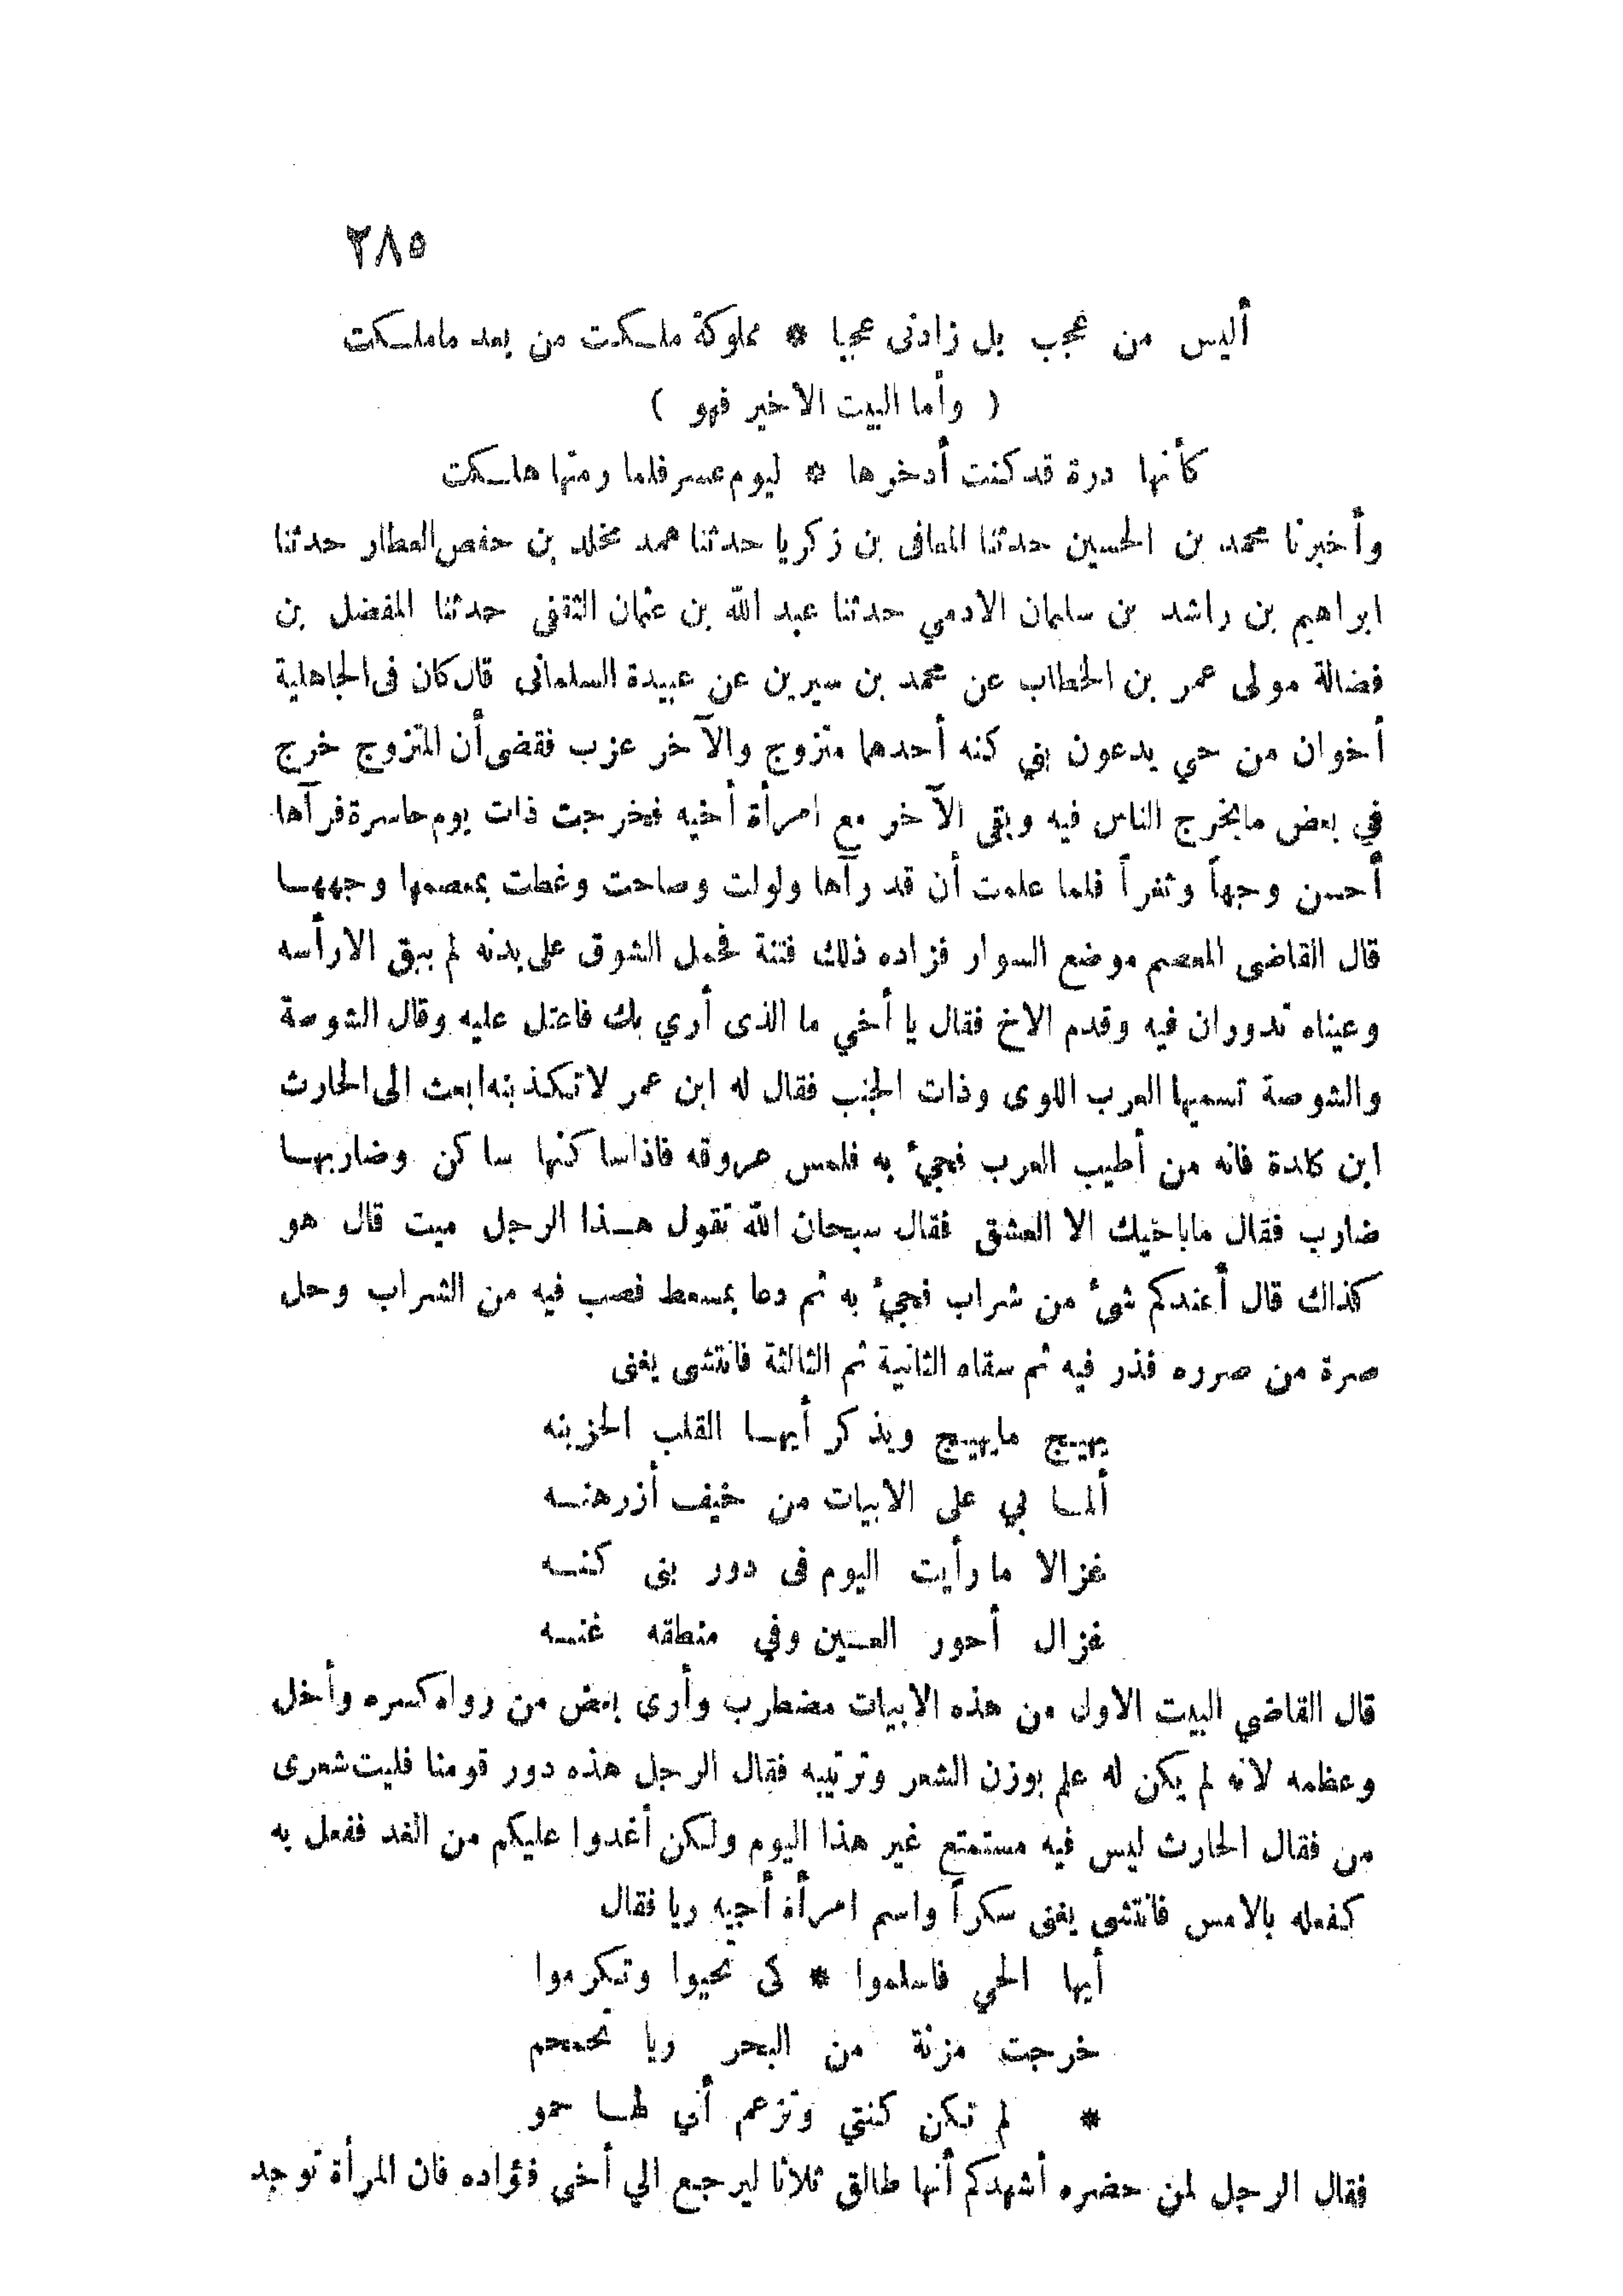 ٢٨٥
أليس من عجب بل زادنى عجبا * مملوكة ملكت من بعد ماملكت
( وأما البيت الاخير فهو )
كأنها درة قد كنت أدخرها * ليوم عسر فلما رمتها هلكت
وأخبرنا محمد بن الحسين حدثنا المعافى بن زكريا حدثنا محمد مخلد بن حفص العطار حدثنا
ابراهيم بن راشد بن سليمان الادمي حدثنا عبد الله بن عثمان الثقفى حدثنا المفضل بن
فضالة مولى عمر بن الخطاب عن محمد بن سيرين عن عبيدة السلمانى قال كان فى الجاهلية
أخوان من حي يدعون بني كنه أحدهما متزوج والآخر عزب فقضى أن المتزوج خرج
في بعض مايخرج الناس فيه وبقى الآخر مع امرأة أخيه فخرجت ذات يوم حاسرة فرآها
أحسن وجهاً وثغراً فلما علمت أن قد رآها ولولت وصاحت وغطت بمعصمها وجهها
قال القاضى المعصم موضع السوار فزاده ذلك فتنة فحمل الشوق على بدنه لم يبق الارأسه
وعيناه تدوران فيه وقدم الاخ فقال يا أخي ما الذى أري بك فاعتل عليه وقال الشوصة
والشوصة تسميها العرب اللوى وذات الجنب فقال له ابن عمر لاتكذبنه ابعث الى الحارث
ابن كلدة فانه من أطيب العرب فجيئ به فلمس عروقه فاذاساكنها ساكن وضاربها
ضارب فقال ماباخيك الا العشق فقال سبحان الله تقول هذا الرجل ميت قال هو
كذاك قال أعندكم شئ من شراب فجيئ به ثم دعا بمسعط فصب فيه من الشراب وحل
صرة من صرره فذر فيه ثم سقاه الثانية ثم الثالثة فانتشى يغنى
يهيج مايهيج ويذكر أيها القلب الحزينه
ألما بي على الابيات من خيف أزرهنه
غزالا ما رأيت اليوم فى دور بنى كنه
غزال أحور العين وفي منطقه غنه
قال القاضي البيت الاول من هذه الابيات مضطرب وأرى بعض من رواه كسره وأخل
وعظمه لانه لم يكن له علم بوزن الشعر وترتيبه فقال الرجل هذه دور قومنا فليت شعرى
من فقال الحارث ليس فيه مستمتع غير هذا اليوم ولكن أغدوا عليكم من الغد ففعل به
كفعله بالامس فانتشى يغنى سكراً واسم امرأة أجيه ريا فقال
أيها الحي فاسلموا * كى تحيوا وتكرموا
خرجت مزنة من البحر ريا تحمحم
* لم تكن كنتي وتزعم أني لها حمو
فقال الرجل لمن حضره أشهدكم أنها طالق ثلاثا ليرجع الي أخى فؤاده فان المرأة توجد